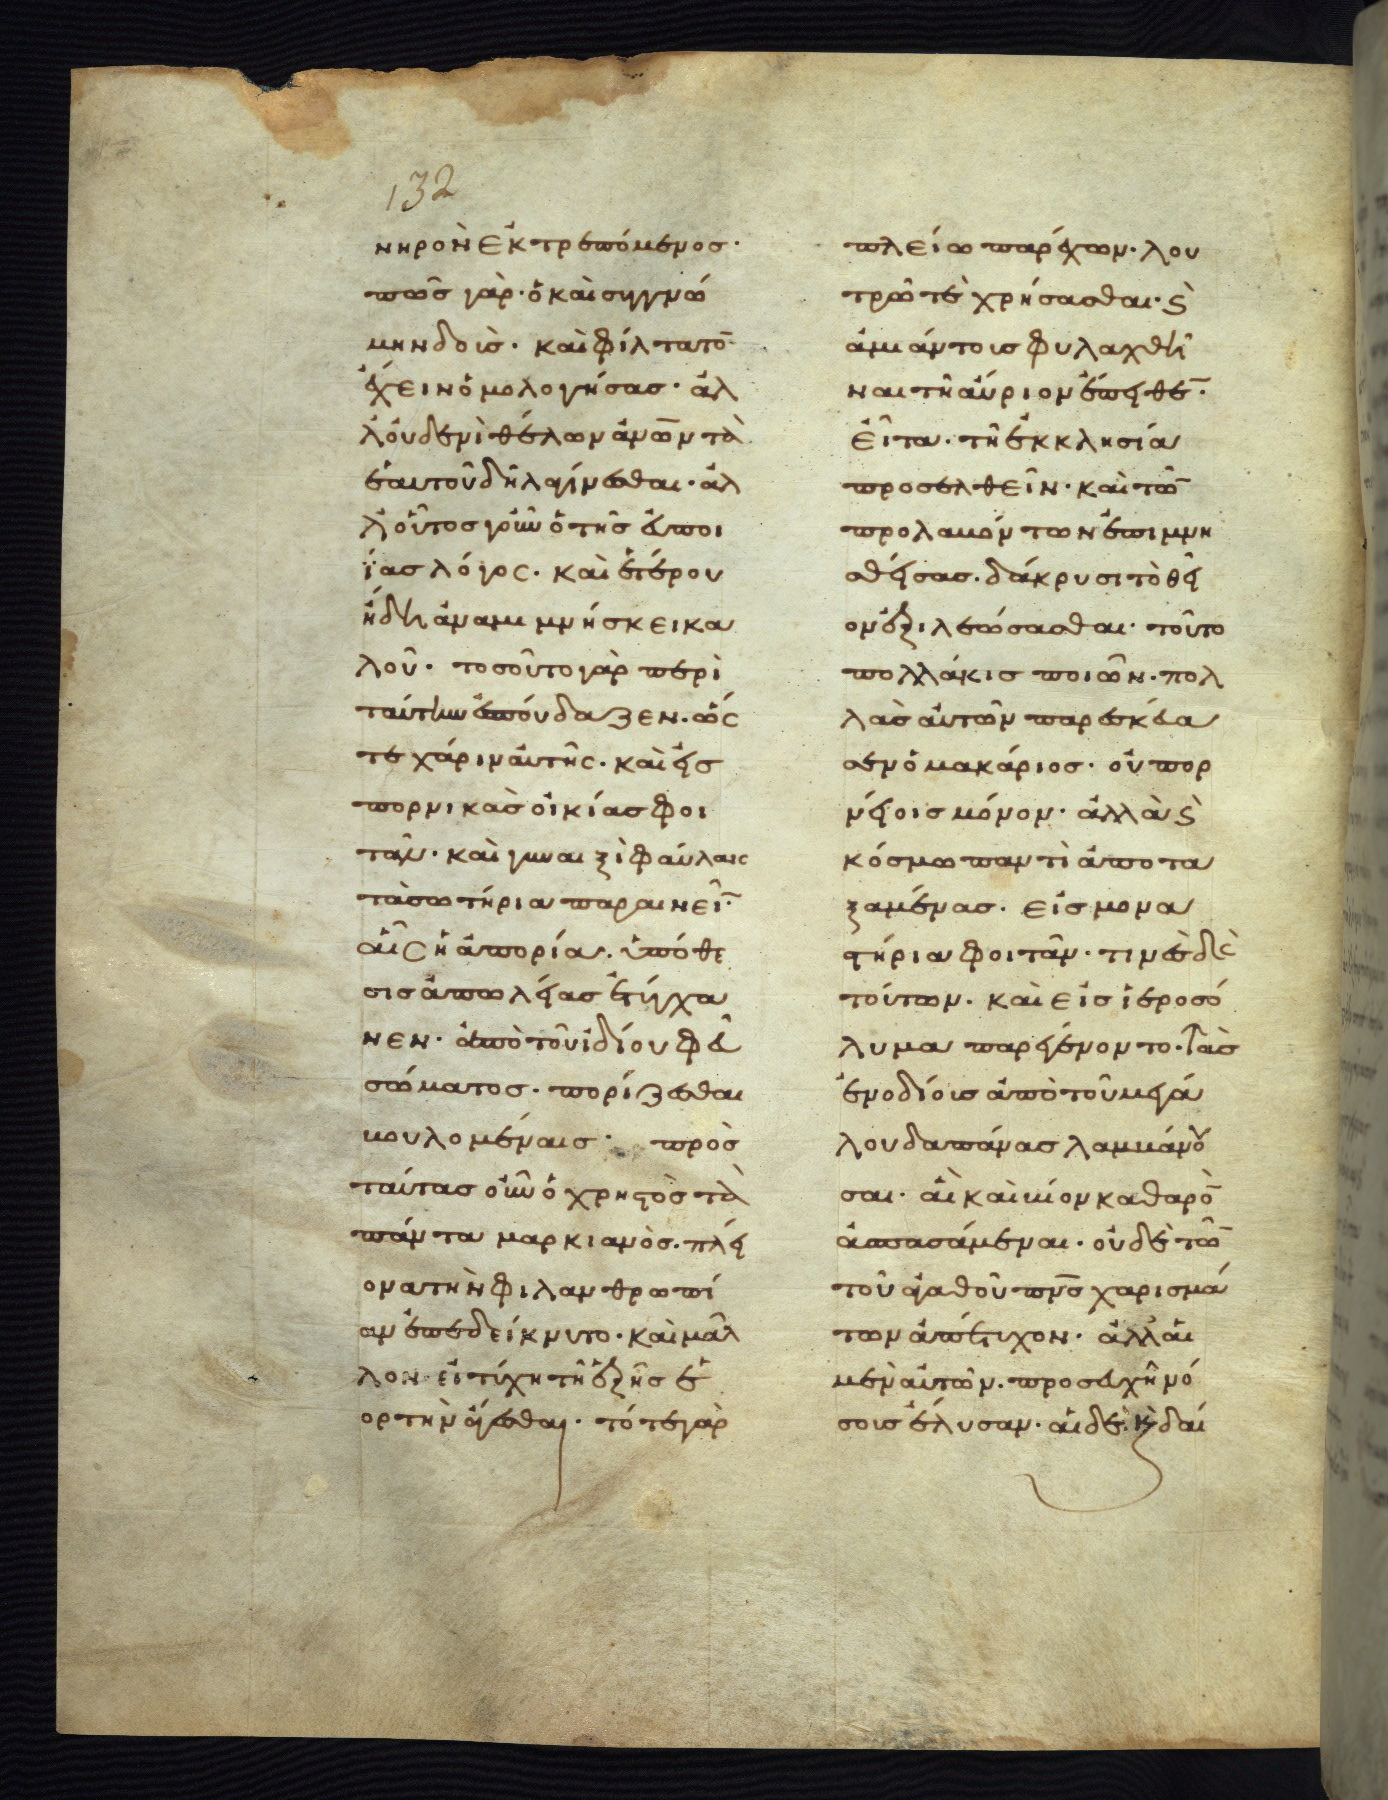 132
νηρὸν ἐκτρεπόμενος·
πῶς γὰρ· ὁ καὶ συγγνώ
μην δοὺς· καὶ φίλτατο̄
ἔχειν ὁμολογήσας· ἀλ
λ' οὐδενὶ θέλων ἀνιῶντα
ἑαυτοῦ δῆλ γίνεσθαι· ἀλ
λ' οὗτος γοῦν ὁ τῆς εὐποι
ίας λόγος· καὶ ἑτέρου
ἤδη ἀναμιμνήσκει κα
λοῦ· τοσοῦτο γὰρ περὶ
ταύτην ἐσπούδαζεν· ὥς
τε χάριν αὐτῆς· καὶ εἰς
πορνικὰς οἰκίας φοι
τᾶν· καὶ γυναιξὶ φαύλαις
τὰ σωτήρια παραινεῖ̄·
αἷς ἡ ἀπορία· ὑπόθε
σις ἀπωλείας ἐτύγχα
νεν· ἀπὸ τοῦ ἰδίου φεῦ
σώματος· πορίζεσθαι
βουλομέναις· πρὸς
ταύτας οὖν ὁ χρηστὸς τὰ
πάντα μαρκιανὸς· πλεί
ονα τὴν φιλανθρωπί
αν ἐπεδείκνυτο· καὶ μᾶλ
λον εἰ τύχη τῇ ἑξῆς ἑ
ορτὴν ἄγεσθαι· τότε γὰρ
πλείω παρέχων· λου
τρῶ τὲ χρήσασθαι· ϗ
ἀμιάντοις φυλαχθῆ
ναι τῇ αὔριον ἔπειθε̄·
εἶτα· τῇ ἐκκλησία
προσελθεῖν· καὶ τῶ̄
προλαβόντων ἐπιμνη
σθείσας· δάκρυσι τὸ θεῖ
ον ἐξιλεώσασθαι· τοῦτο
πολλάκις ποιῶν· πολ
λὰς αὐτῶν παρεσκεύα
σεν ὁ μακάριος· οὐ πορ
νείοις μόνον· ἀλλὰ ϗ
κόσμω παντὶ ἀποτα
ξαμένας· εἰς μονα
στήρια φοιτᾶν· τινὲς δὲ
τούτων· καὶ εἰς ἱεροσό
λυμα παρεγένοντο· τὰς
ἐνοδίοις ἀπὸ τοῦ μεγά
λου δαπάνας λαμβάνου
σαι· αἳ καὶ βίον καθαρὸ̄
ἀσπασάμεναι· οὐδὲ τῶ̄
τοῦ ἀγαθοῦ πν̄ς χαρισμά
των ἀπέτυχον· ἀλλ' αἱ
μὲν αὐτῶν· προσευχῇ νό
σοις ἔλυσαν· αἱ δὲ· ϗ δαί